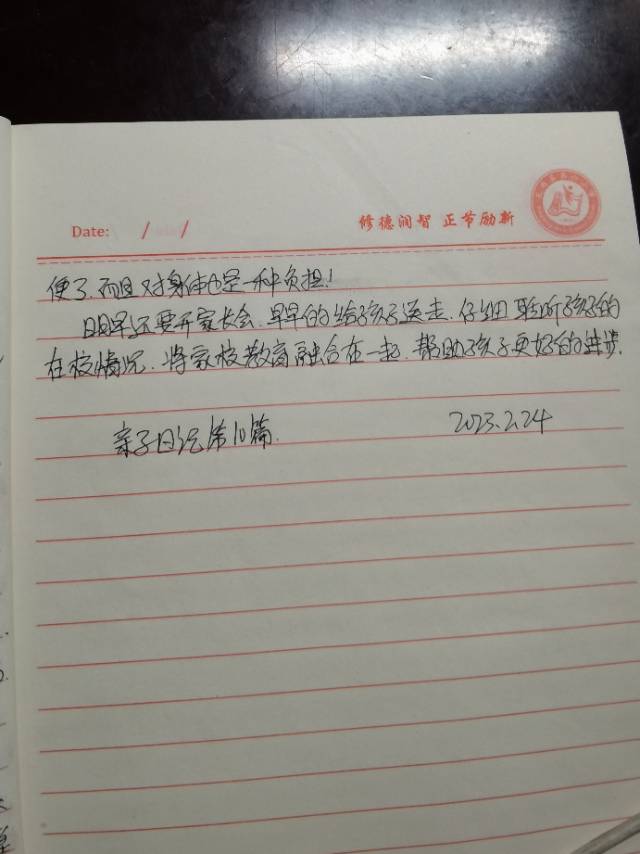 Date: / /
修德润智 正节励新
便了.而且对身体也是一种负担!
明早还要开家长会.早早的给孩子送走.仔细聆听孩子的
在校情况.将家校教育融合在一起.帮助孩子更好的进步.
亲子日记第10篇.
2023.2.24